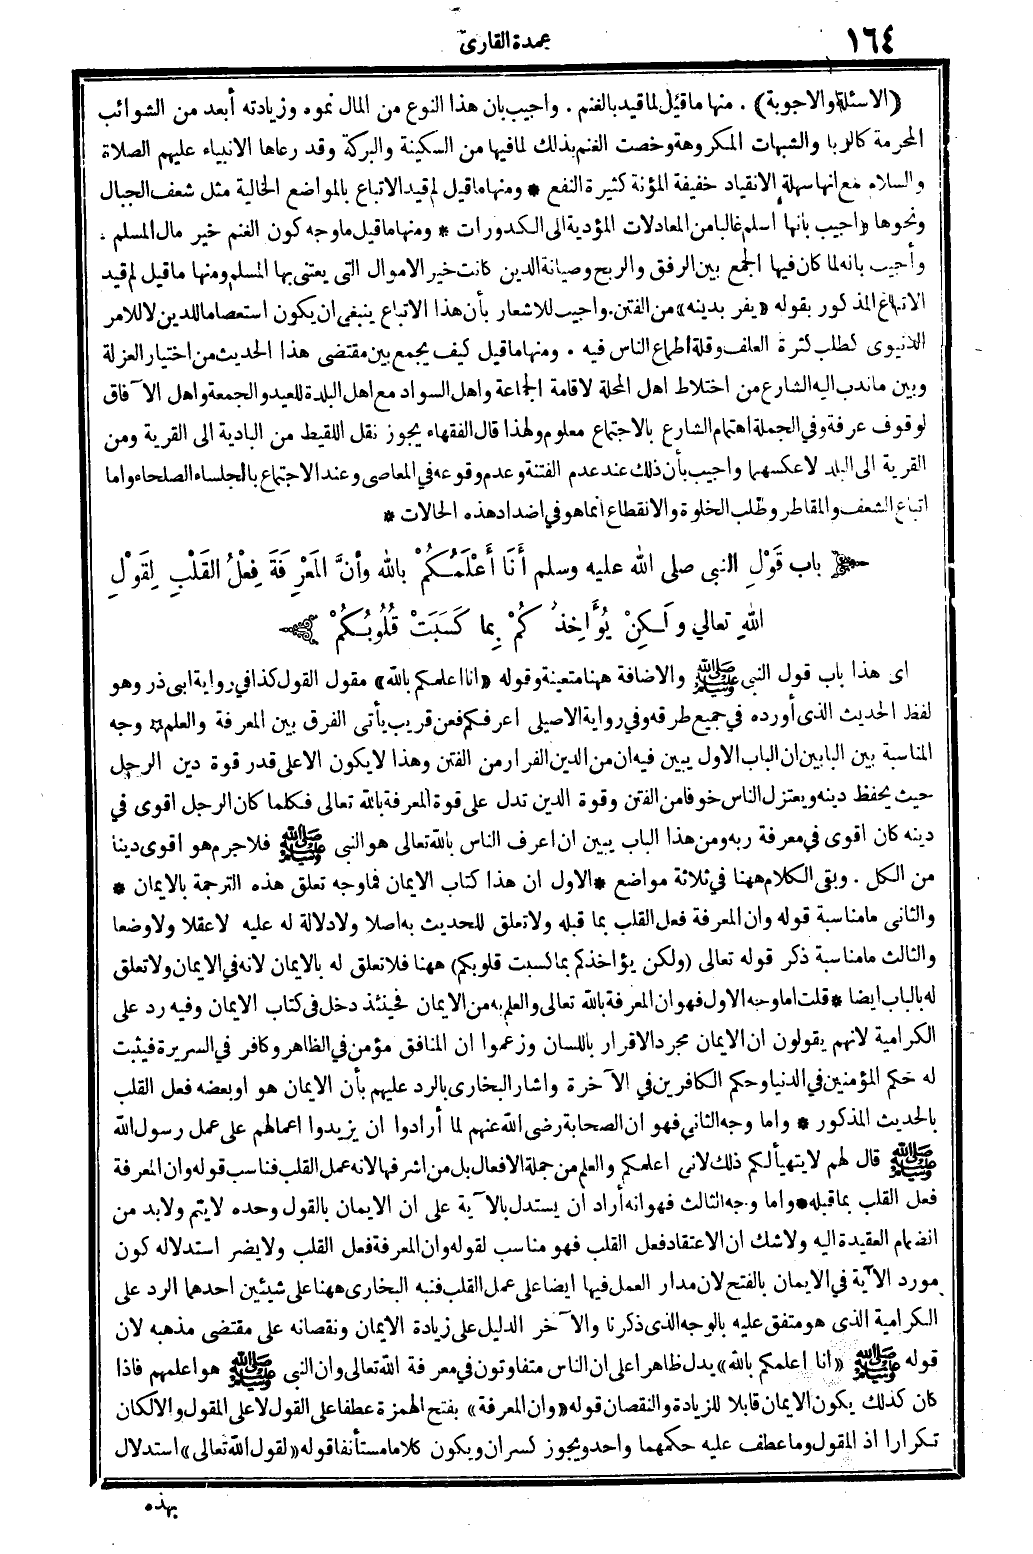 ١٦٤
عمدة القارئ
(الاسئلة والاجوبة) . منها ما قيل لما قيد بالغنم . واجيب بان هذا النوع من المال نموه وزيادته أبعد من الشوائب
المحرمة كالربا والشبهات المكروهة وخصت الغنم بذلك لما فيها من السكينة والبركة وقد رعاها الانبياء عليهم الصلاة
والسلام مع انها سهلة الانقياد خفيفة المؤنة كثيرة النفع * ومنها ما قيل لم قيد الاتباع بالمواضع الخالية مثل شعف الجبال
ونحوها واجيب بانها اسلم غالبا من المعادلات المؤدية الى الكدورات * ومنها ما قيل ما وجه كون الغنم خير مال المسلم .
وأجيب بانه لما كان فيها الجمع بين الرفق والربح وصيانة الدين كانت خير الاموال التى يعتنى بها المسلم ومنها ما قيل لم قيد
الاتباع المذكور بقوله «يفر بدينه» من الفتن . واجيب للاشعار بأن هذا الاتباع ينبغى ان يكون استعصاما للدين لا للامر
الدنيوى كطلب كثرة العلف وقلة اطماع الناس فيه . ومنها ما قيل كيف يجمع بين مقتضى هذا الحديث من اختيار العزلة
وبين ما ندب اليه الشارع من اختلاط اهل المحلة لاقامة الجماعة واهل السواد مع اهل البلدة للعيد والجمعة واهل الآفاق
لوقوف عرفة وفي الجملة اهتمام الشارع بالاجتماع معلوم ولهذا قال الفقهاء يجوز نقل اللقيط من البادية الى القرية ومن
القرية الى البلد لا عكسهما واجيب بأن ذلك عند عدم الفتنة وعدم وقوعه في المعاصى وعند الاجتماع بالجلساء الصلحاء واما
اتباع الشعف والمقاطر وطلب الخلوة والانقطاع انما هو في اضداد هذه الحالات *
باب قَوْلِ النبى صلى الله عليه وسلم أَنَا أَعْلَمُكُمْ بالله وأنَّ المَعْرِفَةَ فِعْلُ القَلْبِ لِقَوْلِ
اللهِ تعالي ولَـكِنْ يُؤَاخِذُكُمْ بِما كَسَبَتْ قُلُوبُكُمْ
اى هذا باب قول النبى ﷺ والاضافة ههنا متعينة وقوله «انا اعلمكم بالله» مقول القول كذا في رواية ابى ذر وهو
لفظ الحديث الذى أورده في جميع طرقه وفي رواية الاصيلى اعرفكم فعن قريب يأتى الفرق بين المعرفة والعلم * وجه
المناسبة بين البابين ان الباب الاول يبين فيه ان من الدين الفرار من الفتن وهذا لا يكون الا على قدر قوة دين الرجل
حيث يحفظ دينه ويعتزل الناس خوفا من الفتن وقوة الدين تدل على قوة المعرفة بالله تعالى فكلما كان الرجل اقوى في
دينه كان اقوى في معرفة ربه ومن هذا الباب يبين ان اعرف الناس بالله تعالى هو النبى ﷺ فلا جرم هو اقوى دينا
من الكل . وبقى الكلام ههنا في ثلاثة مواضع * الاول ان هذا كتاب الايمان فما وجه تعلق هذه الترجمة بالايمان *
والثانى ما مناسبة قوله وان المعرفة فعل القلب بما قبله ولا تعلق للحديث به اصلا ولا دلالة له عليه لا عقلا ولا وضعا
والثالث ما مناسبة ذكر قوله تعالى (ولكن يؤاخذكم بما كسبت قلوبكم) ههنا فلا تعلق له بالايمان لانه في الايمان ولا تعلق
له بالباب ايضا * قلت اما وجه الاول فهو ان المعرفة بالله تعالى والعلم به من الايمان فحينئذ دخل فى كتاب الايمان وفيه رد على
الكرامية لانهم يقولون ان الايمان مجرد الاقرار باللسان وزعموا ان المنافق مؤمن في الظاهر وكافر في السريرة فيثبت
له حكم المؤمنين في الدنيا وحكم الكافرين في الآخرة واشار البخارى بالرد عليهم بأن الايمان هو او بعضه فعل القلب
بالحديث المذكور * واما وجه الثانى فهو ان الصحابة رضى الله عنهم لما أرادوا ان يزيدوا اعمالهم على عمل رسول الله
ﷺ قال لهم لا يتهيأ لكم ذلك لانى اعلمكم والعلم من جملة الافعال بل من اشرفها لانه عمل القلب فناسب قوله وان المعرفة
فعل القلب بما قبله * واما وجه الثالث فهو انه أراد ان يستدل بالآية على ان الايمان بالقول وحده لا يتم ولا بد من
انضمام العقيدة اليه ولا شك ان الاعتقاد فعل القلب فهو مناسب لقوله وان المعرفة فعل القلب ولا يضر استدلاله كون
مورد الآية في الايمان بالفتح لان مدار العمل فيها ايضا على عمل القلب فنبه البخارى ههنا على شيئين احدهما الرد على
الكرامية الذى هو متفق عليه بالوجه الذى ذكرنا والآخر الدليل على زيادة الايمان ونقصانه على مقتضى مذهبه لان
قوله ﷺ «انا اعلمكم بالله» يدل ظاهرا على ان الناس متفاوتون في معرفة الله تعالى وان النبى ﷺ هو اعلمهم فاذا
كان كذلك يكون الايمان قابلا للزيادة والنقصان قوله «وان المعرفة» بفتح الهمزة عطفا على القول لا على المقول والالكان
تكرارا اذ المقول وما عطف عليه حكمهما واحد ويجوز كسر ان ويكون كلاما مستأنفا قوله «لقول الله تعالى» استدلال
بهذه